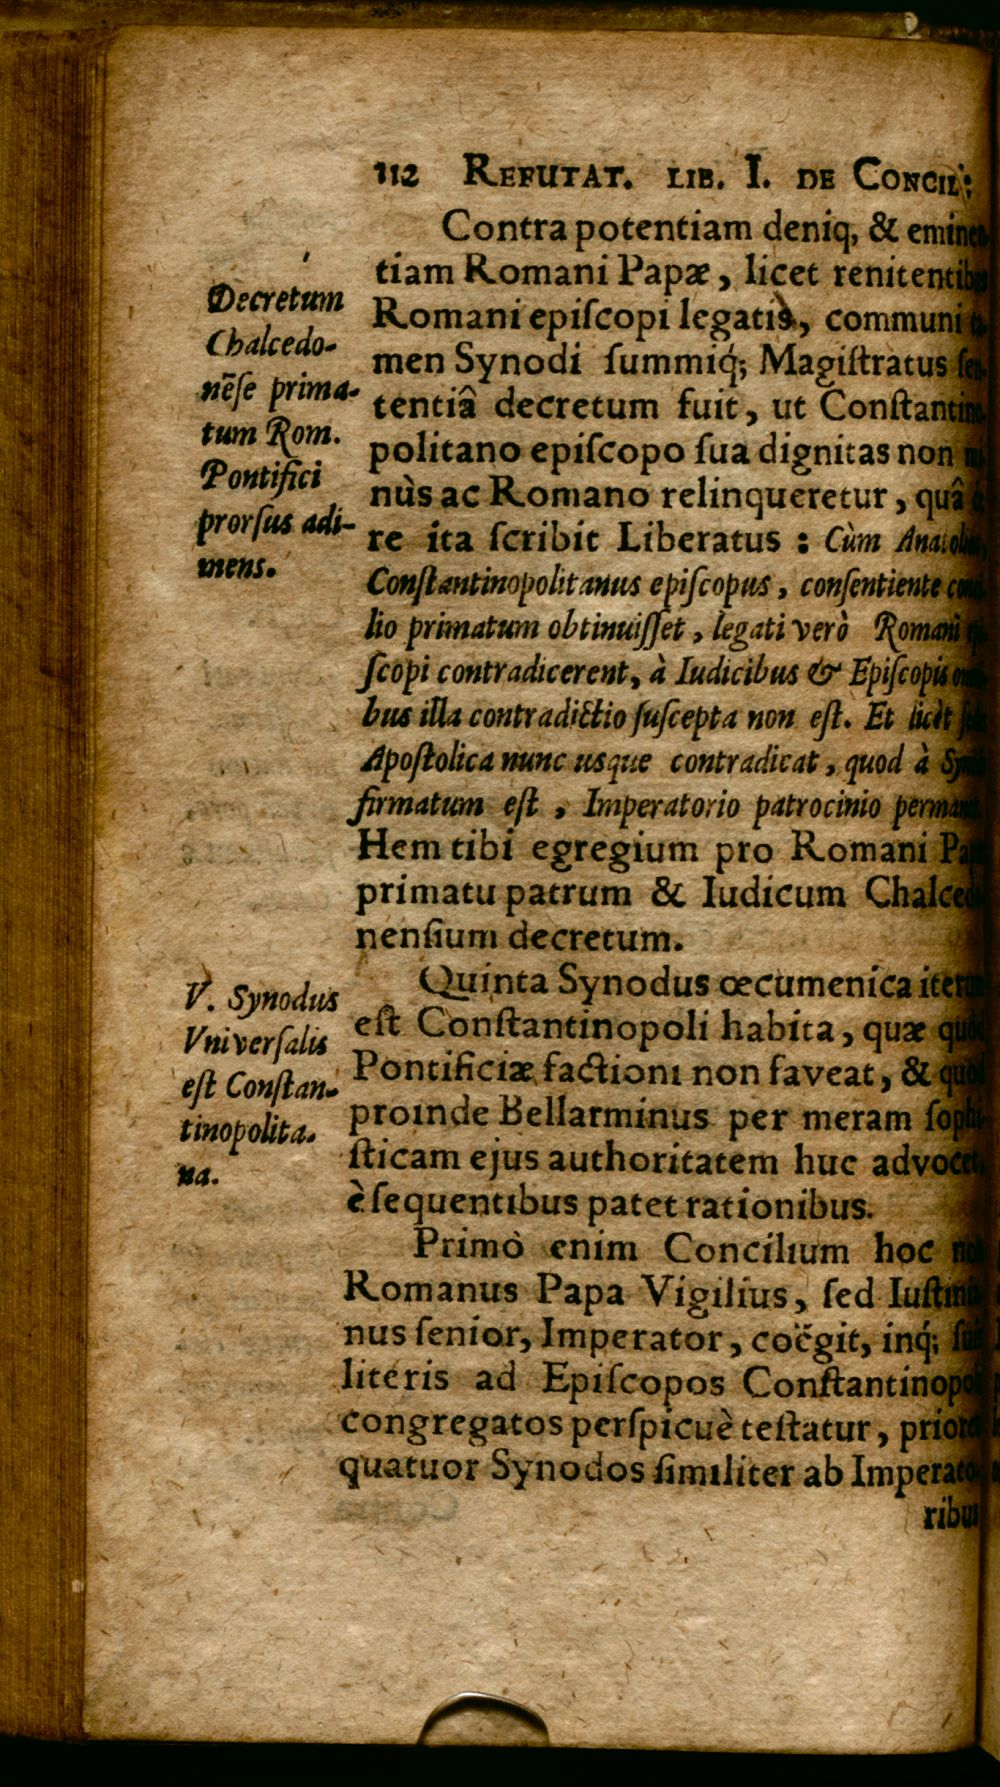 112 REFUTAT. LIB. I. DE CONCIL:
Contra potentiam deniq, & eminen-
tiam Romani Papæ, licet renitentibus
Romani episcopi legatis, communi ta-
men Synodi summiq́; Magistratus sen-
tentiâ decretum fuit, ut Constantino-
politano episcopo sua dignitas non mi-
nùs ac Romano relinqueretur, quâ
re ita scribit Liberatus: Cùm Anatolius,
Constantinopolitanus episcopus, consentiente conci-
lio primatum obtinuisset, legati verò Romani epi-
scopi contradicerent, à Iudicibus & Episcopis omni-
bus illa contradictio suscepta non est. Et licèt sedes
Apostolica nunc usque contradicat, quod à Synodo
firmatum est, Imperatorio patrocinio permanet.
Hem tibi egregium pro Romani Papæ
primatu patrum & Iudicum Chalcedo-
nensium decretum.
Decretum
Chalcedo-
nẽse prima-
tum Rom.
Pontifici
prorsus adi-
mens.
Quinta Synodus œcumenica iterum
est Constantinopoli habita, quæ quòd
Pontificiæ factioni non faveat, & quòd
proinde Bellarminus per meram sophi-
sticam ejus authoritatem huc advocet,
è sequentibus patet rationibus.
V. Synodus
Vniversalis
est Constan-
tinopolita-
na.
Primò enim Concilium hoc non
Romanus Papa Vigilius, sed Iustinia-
nus senior, Imperator, coëgit, inq́; suis
literis ad Episcopos Constantinopoli
congregatos perspicuè testatur, priores
quatuor Synodos similiter ab Imperato-
ribus